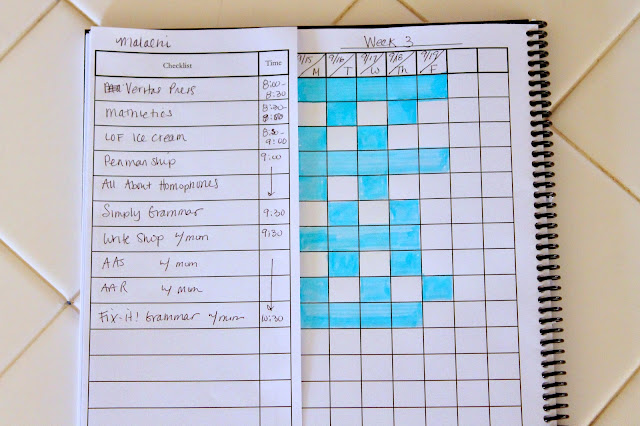 Malachi
Week 3
Checklist Time
9/15 9/16 9/17 9/18 9/19
M T W Th F
Veritas Press 8:00-8:30
Mathletics
LOF Ice Cream 9:00
Penmanship 9:00
All About Homophones
Simply Grammar 9:30
Write Shop w/ mum 9:30
AAS w/ mum
AAR w/ mum
Fix-It! Grammar w/ mum 10:30